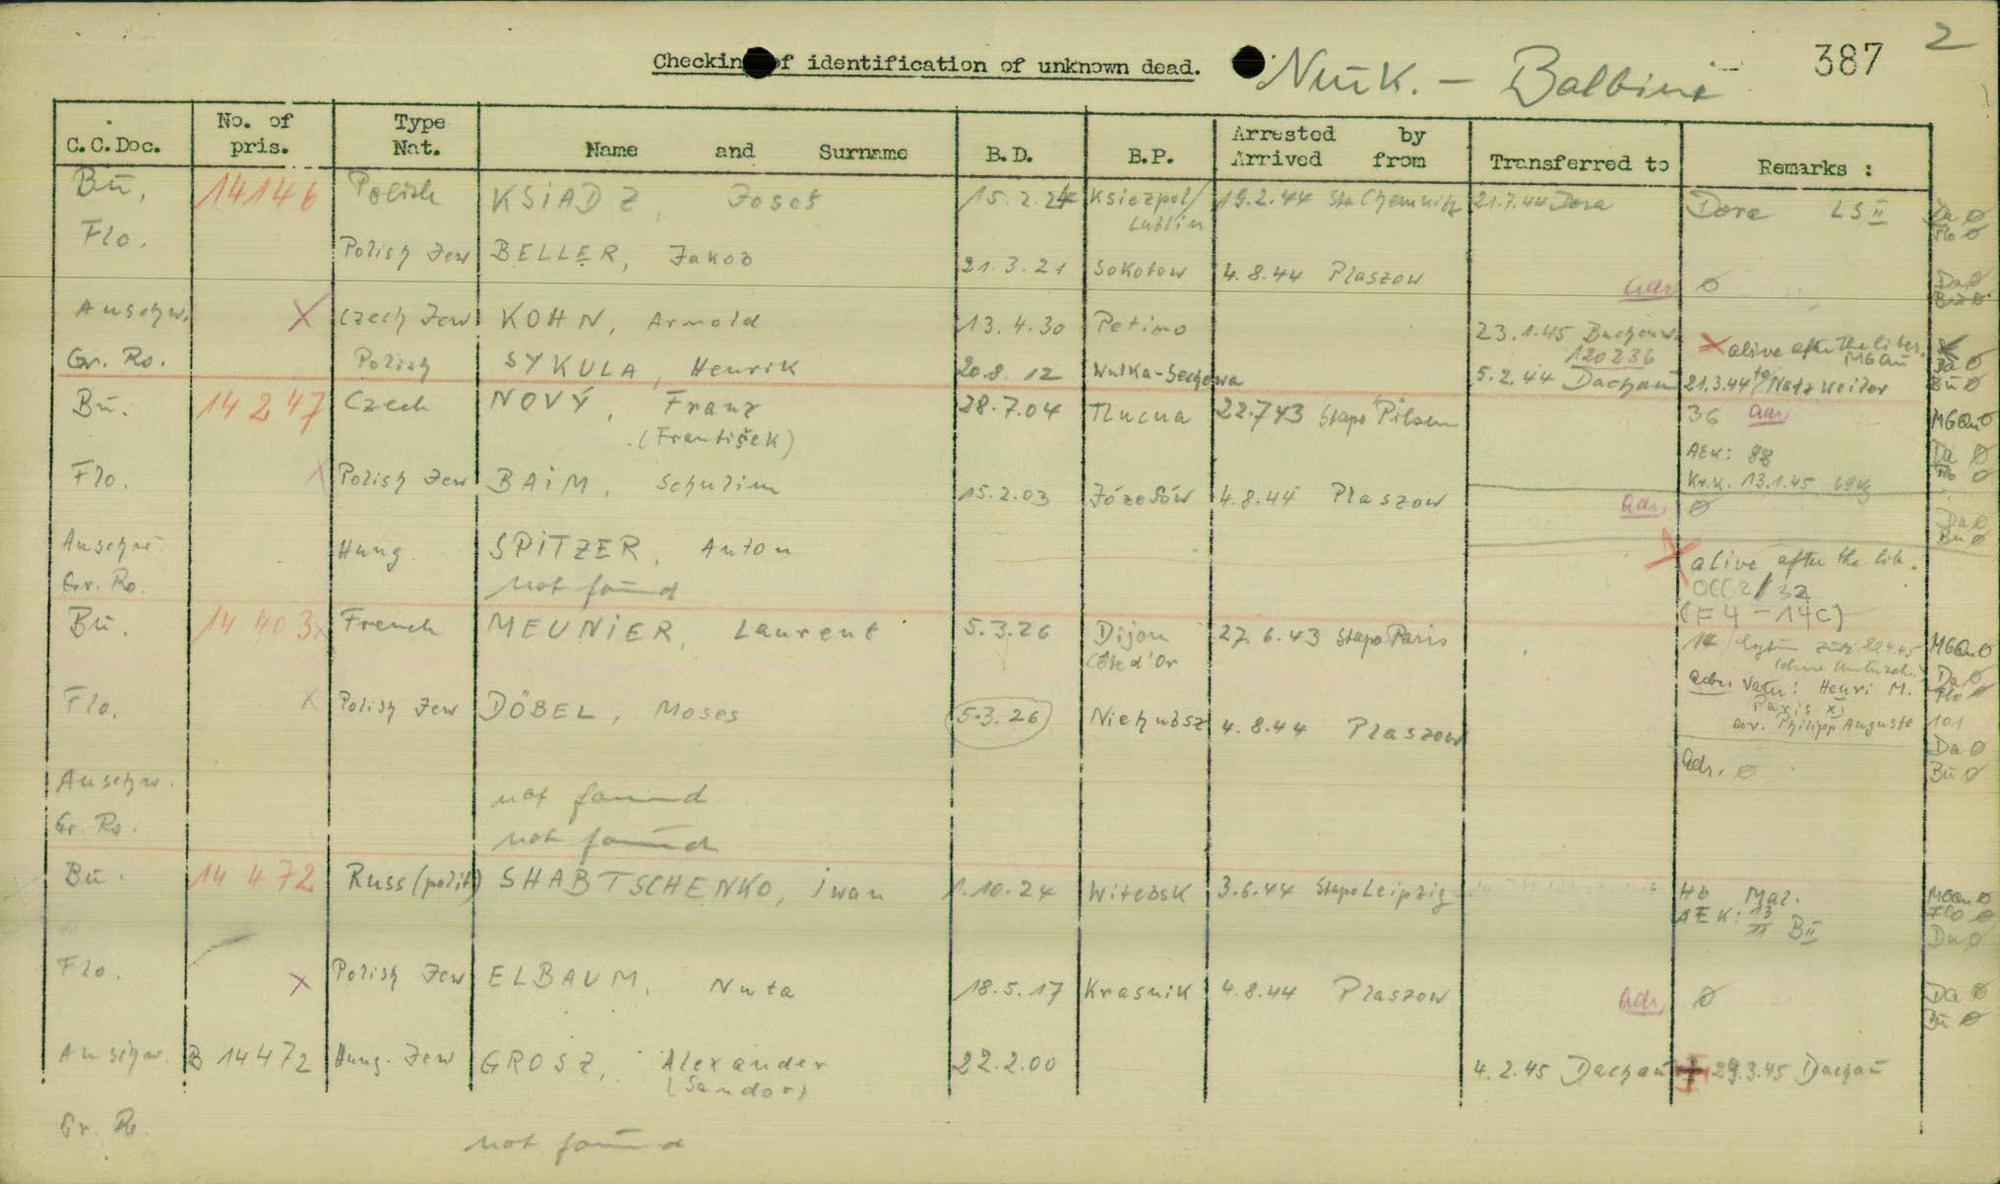 Checking of identification of unknown dead. Nuīk. - Balbini 387 2
C.C.Doc. No. of pris. Type Nat. Name and Surname B.D. B.P. Arrested by Arrived from Transferred to Remarks :
Bū. 14146 Polish KSIADZ, Josef 15.2.24 Ksiezpol/ 19.2.44 Sta Chemnitz 21.7.44 Dora Dora LS II Da ø
Lublin Flo ø
Flo. Polish Jew BELLER, Jakob 21.3.21 Sokolow 4.8.44 Plaszow adr. ø Da ø
Bu ø
Auschw. X Czech Jew KOHN, Arnold 13.4.30 Petimo 23.1.45 Buchenw. X alive after the liber.
120236 MGAu
Gr. Ro. Polish SYKULA, Henrik 20.8.12 Wulka-Sechowa 5.2.44 Dachau 21.3.44 to/Natzweiler Da ø
Bū ø
Bū. 14247 Czech NOVÝ, Franz 28.7.04 Tlucna 22.7.43 Stapo Pilsen 36 adr. MGAu ø
(František) AEK: 88 Da ø
Flo ø
Flo. X Polish Jew BAIM, Schulim 15.2.03 Józefów 4.8.44 Plaszow Kr.K. 13.1.45 69kg
adr. ø Da ø
Bu ø
Auschw. Hung. SPITZER, Anton X alive after the lib.
Gr. Ro. not found OCC2/32
(F4-14C)
Bū. 14403 X French MEUNIER, Laurent 5.3.26 Dijon 27.6.43 Stapo Paris MGAu ø
Côte d'Or Da ø
adr. Vater: Henri M. Flo ø
Paris XI
Flo. X Polish Jew DÖBEL, Moses 5.3.26 4.8.44 Plaszow av. Philipp Auguste 101
Da ø
adr. ø Bū ø
Auschw. not found
Gr. Ro. not found
Bū. 14472 Russ (polit) SHABTSCHENKO, Iwan 1.10.24 Witebsk 3.6.44 Stapo Leipzig Hb Mal. MGAu ø
AEK: 13/11 BII Flo ø
Da ø
Flo. X Polish Jew ELBAUM, Nuta 18.5.17 Krasnik 4.8.44 Plaszow adr. ø Da ø
Bū ø
Auschw. B 14472 Hung. Jew GROSZ, Alexander 22.2.00 4.2.45 Dachau + 29.3.45 Dachau
(Sandor)
Gr. R. not found